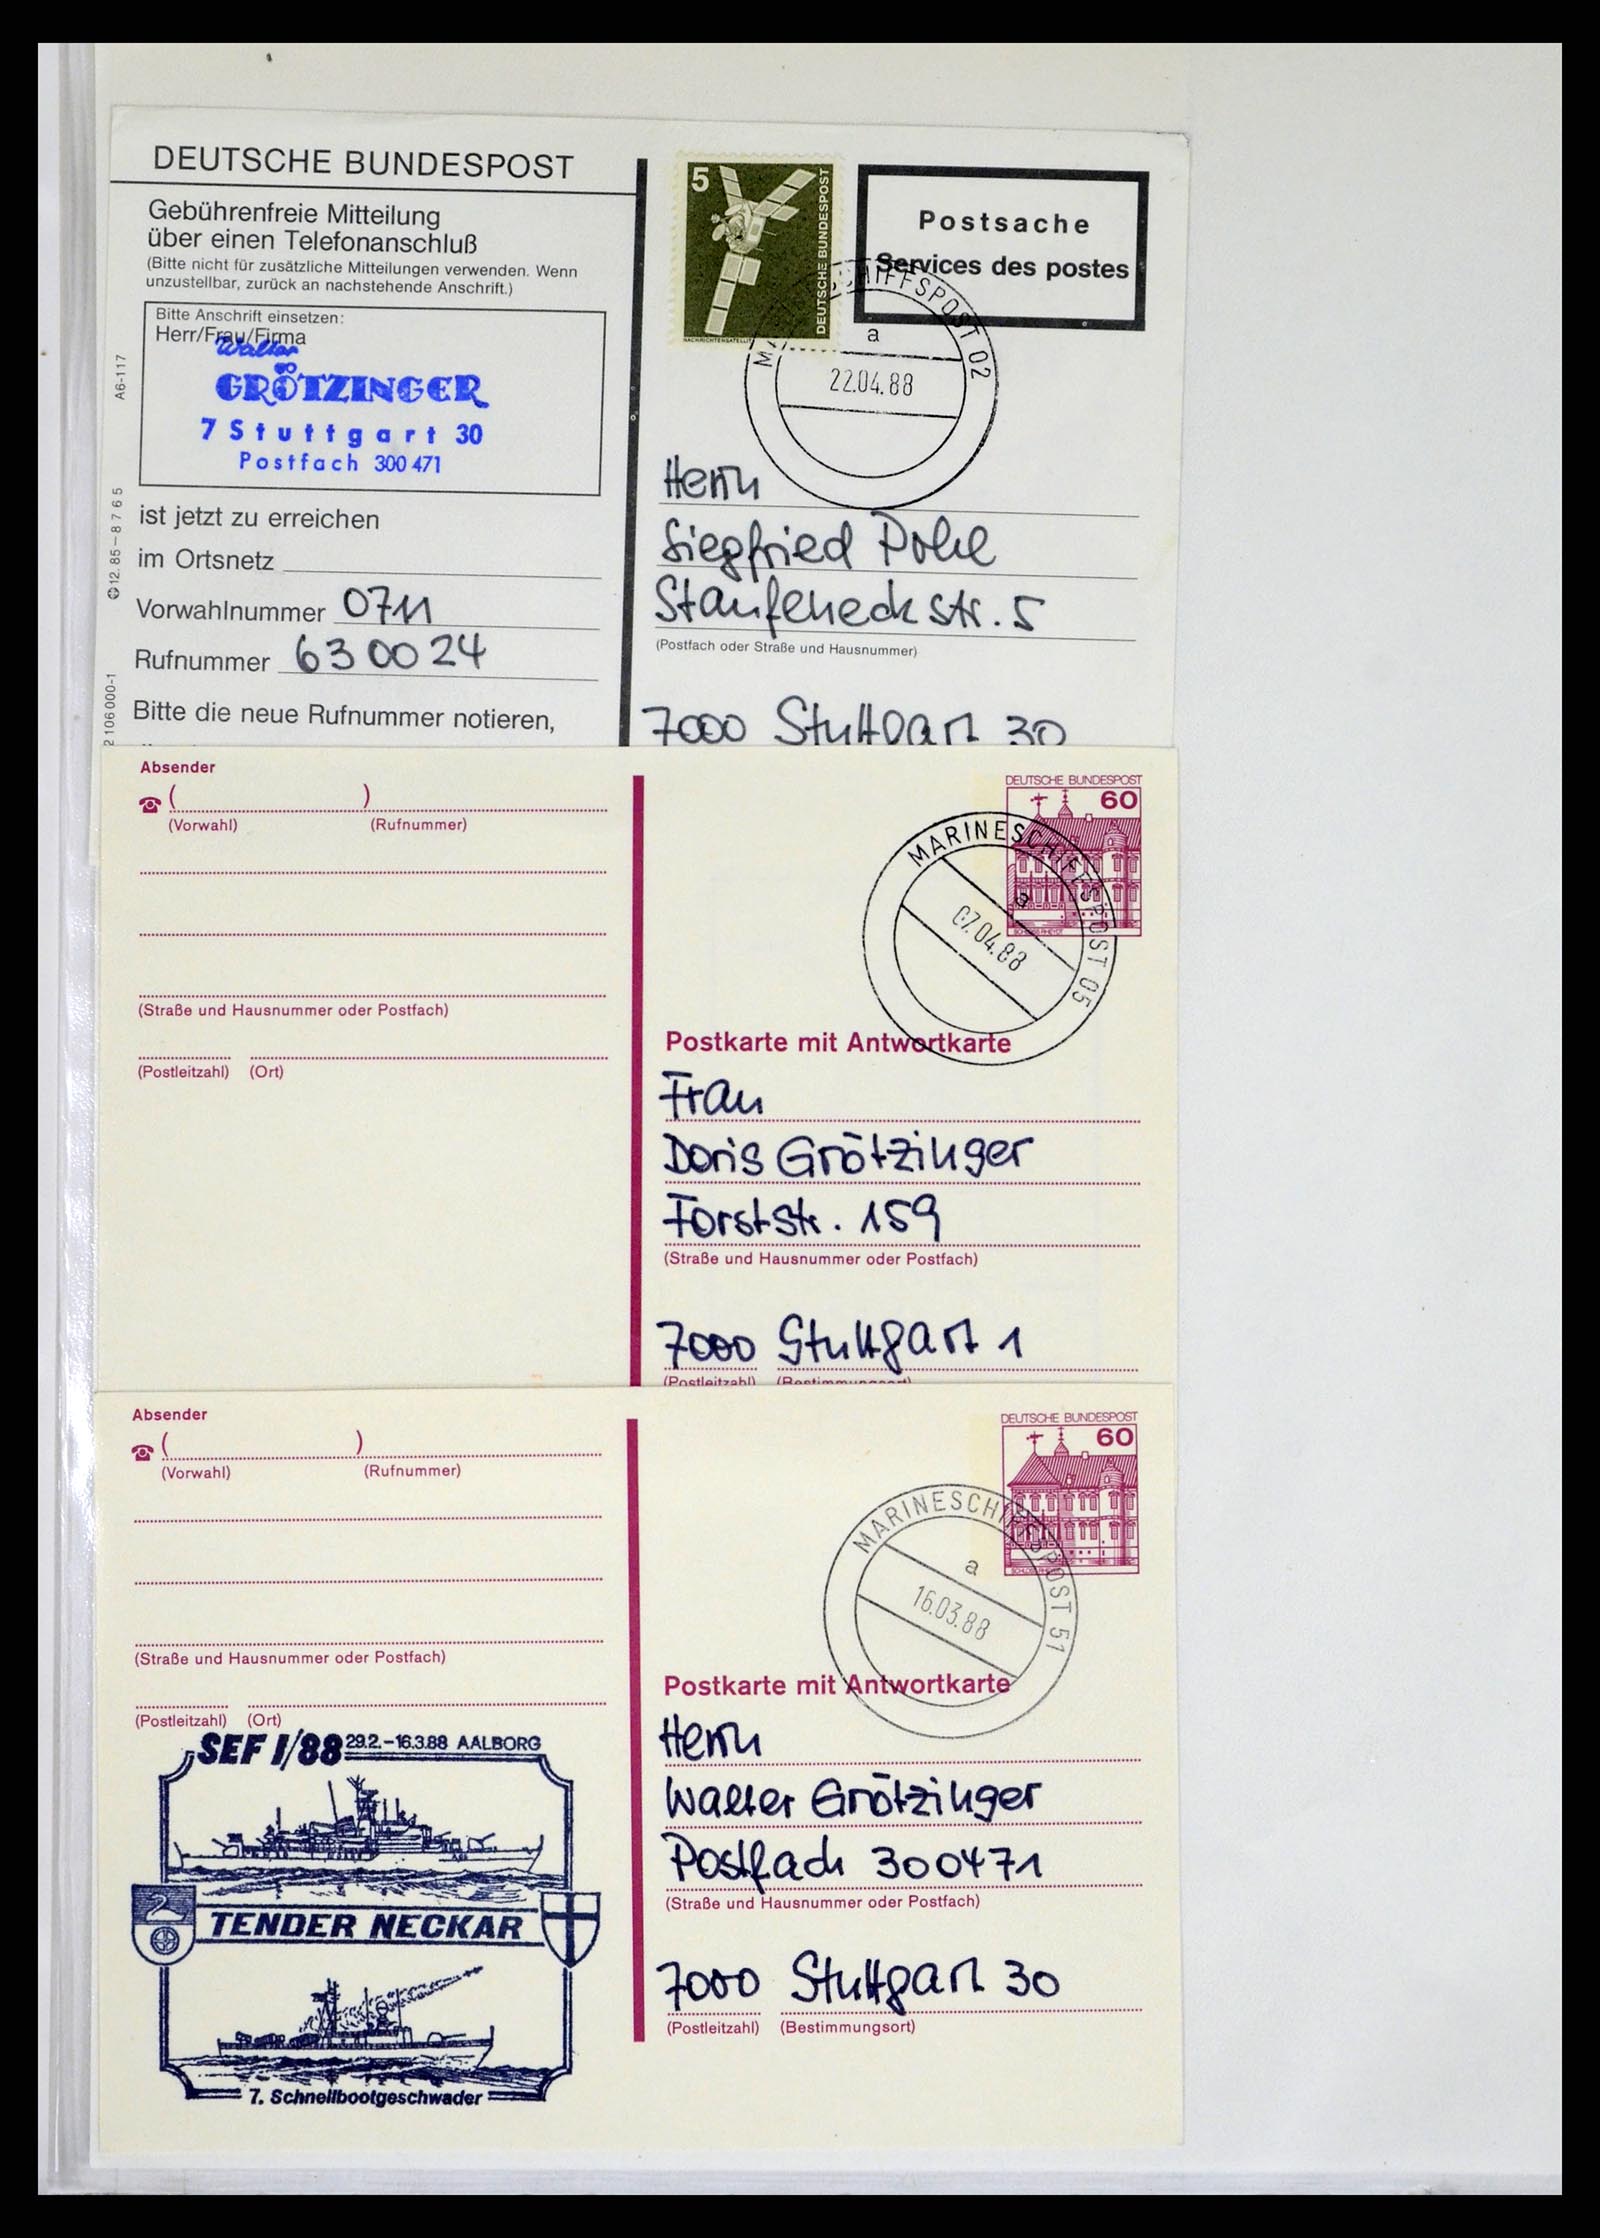 DEUTSCHE BUNDESPOST
Gebührenfreie Mitteilung
über einen Telefonanschluß
(Bitte nicht für zusätzliche Mitteilungen verwenden. Wenn
unzustellbar, zurück an nachstehende Anschrift.)
Bitte Anschrift einsetzen:
Herr/Frau/Firma
Walter
GRÖTZINGER
7 Stuttgart 30
Postfach 300 471
ist jetzt zu erreichen
im Ortsnetz
Vorwahlnummer 0711
Rufnummer 630024
Bitte die neue Rufnummer notieren,
A6-117
12.85 – 8 7 6 5
2 106 000-1
5
DEUTSCHE BUNDESPOST
NACHRICHTENSATELLIT
Postsache
Services des postes
MARINESCHIFFSPOST 02
a
22.04.88
Herrn
Siegfried Pohl
Staufeneckstr. 5
(Postfach oder Straße und Hausnummer)
7000 Stuttgart 30
Absender
( )
(Vorwahl) (Rufnummer)
(Straße und Hausnummer oder Postfach)
(Postleitzahl) (Ort)
DEUTSCHE BUNDESPOST
60
SCHLOSS RHEYDT
MARINESCHIFFSPOST 05
a
07.04.88
Postkarte mit Antwortkarte
Frau
Doris Grötzinger
Forststr. 159
(Straße und Hausnummer oder Postfach)
7000 Stuttgart 1
(Postleitzahl) (Bestimmungsort)
Absender
( )
(Vorwahl) (Rufnummer)
(Straße und Hausnummer oder Postfach)
(Postleitzahl) (Ort)
SEF I/88 29.2.–16.3.88 AALBORG
TENDER NECKAR
7. Schnellbootgeschwader
DEUTSCHE BUNDESPOST
60
SCHLOSS RHEYDT
MARINESCHIFFSPOST 51
a
16.03.88
Postkarte mit Antwortkarte
Herrn
Walter Grötzinger
Postfach 300471
(Straße und Hausnummer oder Postfach)
7000 Stuttgart 30
(Postleitzahl) (Bestimmungsort)